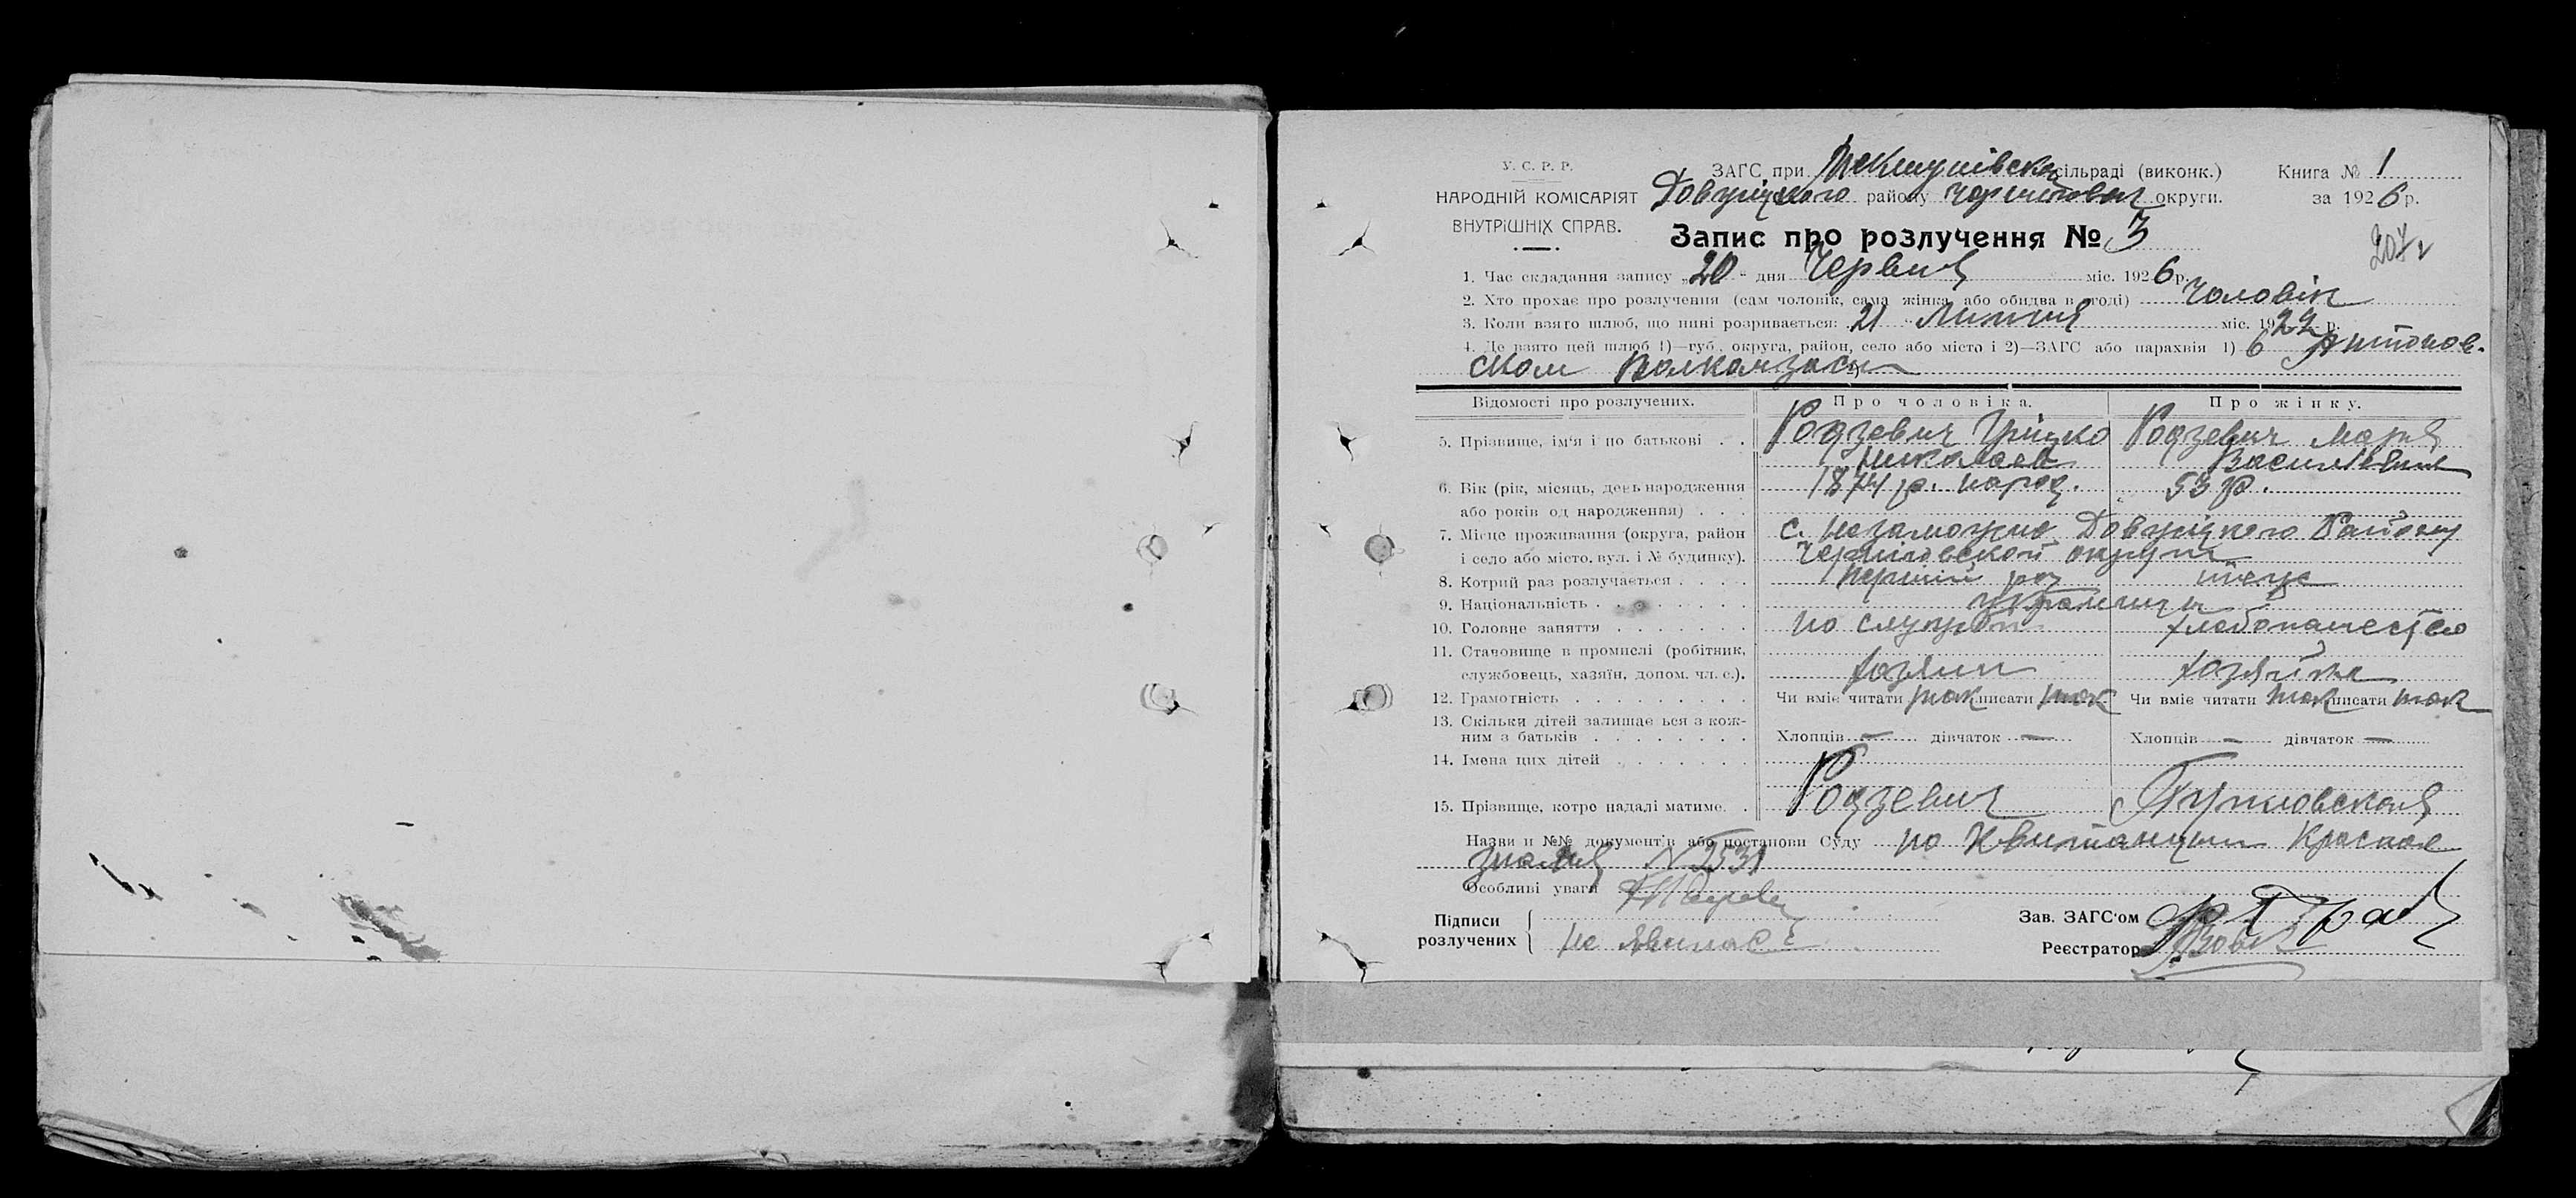 У. С. Р. Р.
НАРОДНІЙ КОМІСАРІЯТ
ВНУТРІШНІХ СПРАВ.
ЗАГС при сільраді (виконк.) Книга № 1
району округи. за 1926 р.
Запис про розлучення № 3
207
1. Час складання запису „20" дня Червня міс. 1926 р.
2. Хто прохає про розлучення (сам чоловік, сама жінка або обидва в згоді) Чоловік
3. Коли взято шлюб, що нині розривається: 21 міс. 1922 р.
4. Де взято цей шлюб 1)—губ., округа, район, село або місто і 2)—ЗАГС або парахвія 1) в Антонов-
ском
Відомості про розлучених. Про чоловіка. Про жінку.
5. Прізвище, ім'я і по батькові . . Родзевич Грицко Родзевич Мария
Николаев Василевна
6. Вік (рік, місяць, день народження 1874 р. народ. 53 р.
або років од народження) . . .
7. Місце проживання (округа, район с. Незаможне Району
і село або місто, вул. і № будинку). Черниговской округи
8. Котрий раз розлучається . . . . Перший раз тоже
9. Національність . . . . . . . . Украинци
10. Головне заняття . . . . . . . по службі хлебопашество
11. Становище в промислі (робітник,
службовець, хазяїн, допом. чл. с.). хазяин хазяйка
12. Грамотність . . . . . . . . . Чи вміє читати так писати так Чи вміє читати так писати так
13. Скільки дітей залишається з кож-
ним з батьків . . . . . . . . Хлопців — дівчаток — Хлопців — дівчаток —
14. Імена цих дітей . . . . . . .
15. Прізвище, котре надалі матиме. . Родзевич
Назви и №№ документів або постанови Суду по Квитанции Красное
знамя № 2531
Особливі уваги
Підписи
розлучених
не явилас
Зав. ЗАГС'ом
Реєстратор